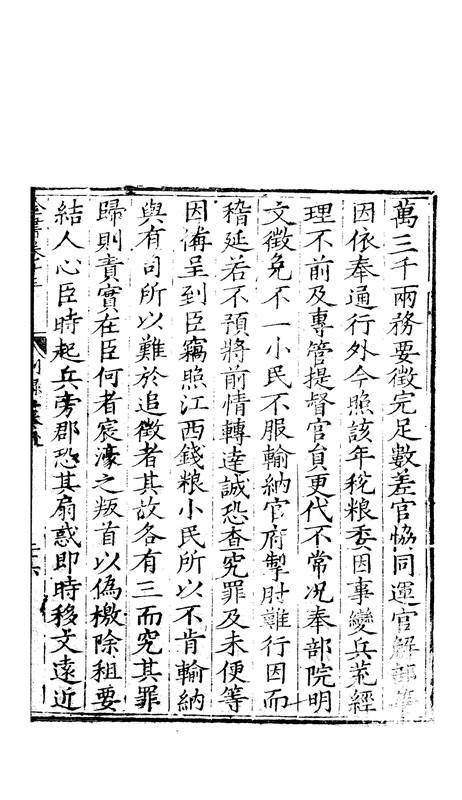 萬三千兩務要徵完足數差官恊同運官解部等
因依奉通行外今照該年稅粮委因事變兵荒經
理不前及專管提督官員更代不常况奉部院明
文徵免不一小民不服輸納官府掣肘難行因而
稽延若不預將前情轉達誠恐查究罪及未便等
因備呈到臣竊照江西錢粮小民所以不肯輸納
與有司所以難於追徵者其故各有三而究其罪
歸則責實在臣何者宸濠之叛首以偽檄除租要
結人心臣時起兵旁郡恐其扇惑即時移文遠近